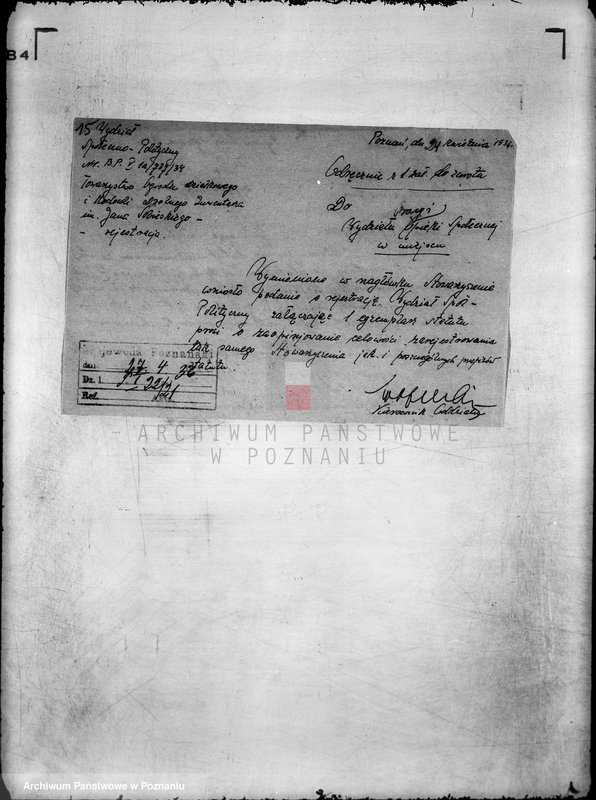 84
15 Wydział
Społeczno-Polityczny
Nr. B.P. V 1a/737/34
Towarzystwo Ogrodu działkowego
i Hodowli drobnego Inwentarza
im. Jana Sobieskiego -
- rejestracja.
Poznań, dn. 24 kwietnia 1934.
Odręcznie z 1 zał. do zwrotu
Do
Wydziału Opieki Społecznej
w miejscu
Wymienione w nagłówku Stowarzyszenie
wniosło podanie o rejestrację. Wydział Społ-
Polityczny załączając 1 egzemplarz statutu
prosi o zaopinjowanie celowości zarejestrowania
tak samego Stowarzyszenia jak i poszczególnych przepisów
statutu.
Kierownik Oddziału
Wojewoda Poznański
dn. 27 4 34
Dz. l.
Ref.
ARCHIWUM PAŃSTWOWE
W POZNANIU
Archiwum Państwowe w Poznaniu